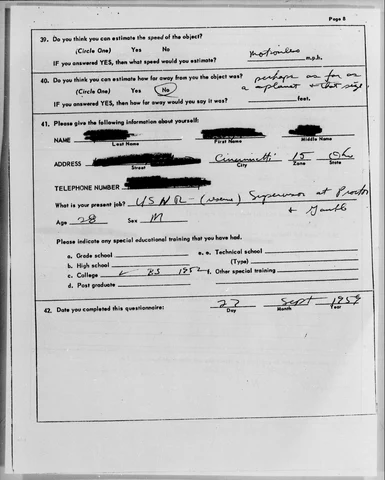 Page 8
39. Do you think you can estimate the speed of the object?
(Circle One) Yes No
IF you answered YES, then what speed would you estimate? Motionless m.p.h.
40. Do you think you can estimate how far away from you the object was? perhaps as far as
(Circle One) Yes No a planet + that size
IF you answered YES, then how far away would you say it was? feet.
41. Please give the following information about yourself:
NAME
Last Name First Name Middle Name
ADDRESS Cincinnatti 15 Oh
Street City Zone State
TELEPHONE NUMBER
What is your present job? USNR - (reserve) Supervisor at Proctor
+ Gamble
Age 28 Sex M
Please indicate any special educational training that you have had.
a. Grade school e. Technical school
b. High school (Type)
c. College ✓ BS 1952 f. Other special training
d. Post graduate
42. Date you completed this questionnaire: 27 Sept 1959
Day Month Year